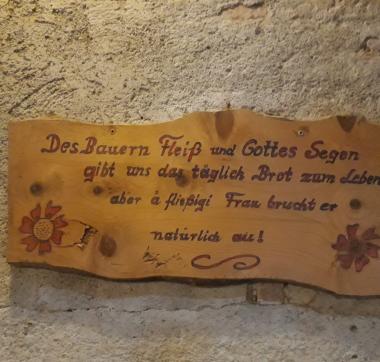 Des Bauern Fleiß und Gottes Segen
gibt uns das täglich Brot zum Leben
aber å fließigi Frau brucht er
natürlich au!